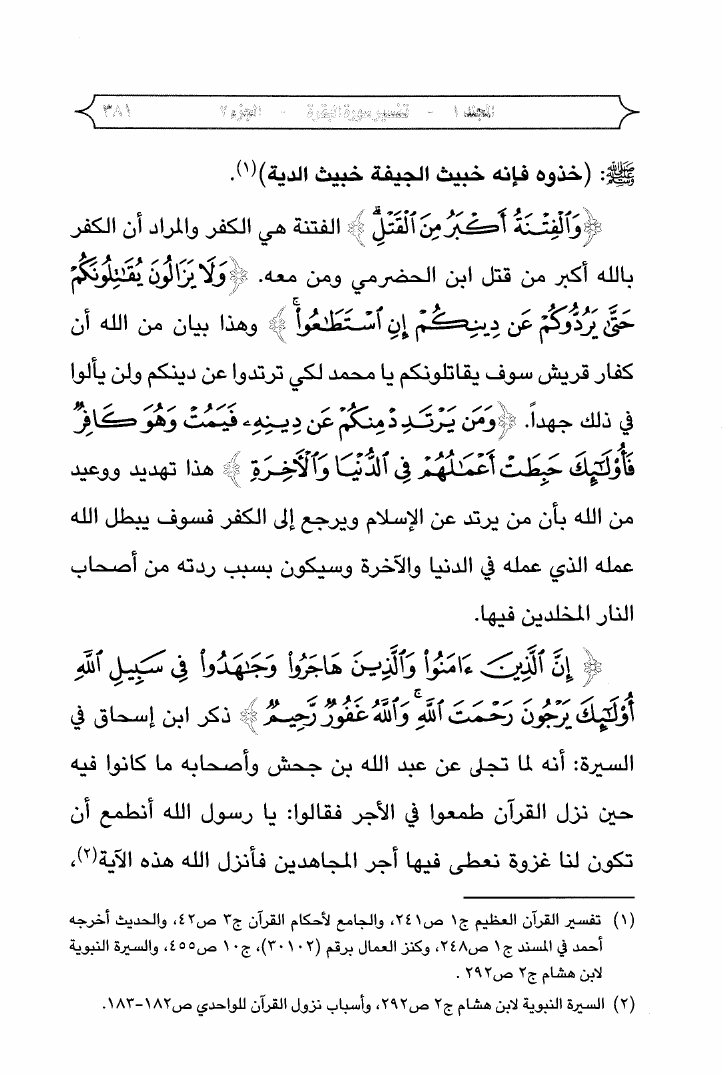 المجلد ١ - تفسير سورة البقرة - الجزء ٢ ٣٨١
ﷺ: (خذوه فإنه خبيث الجيفة خبيث الدية)(١).
﴿وَٱلْفِتْنَةُ أَكْبَرُ مِنَ ٱلْقَتْلِ ۗ﴾ الفتنة هي الكفر والمراد أن الكفر
بالله أكبر من قتل ابن الحضرمي ومن معه. ﴿وَلَا يَزَالُونَ يُقَـٰتِلُونَكُمْ
حَتَّىٰ يَرُدُّوكُمْ عَن دِينِكُمْ إِنِ ٱسْتَطَـٰعُوا۟ ۚ﴾ وهذا بيان من الله أن
كفار قريش سوف يقاتلونكم يا محمد لكي ترتدوا عن دينكم ولن يألوا
في ذلك جهداً. ﴿وَمَن يَرْتَدِدْ مِنكُمْ عَن دِينِهِۦ فَيَمُتْ وَهُوَ كَافِرٌ
فَأُو۟لَـٰٓئِكَ حَبِطَتْ أَعْمَـٰلُهُمْ فِى ٱلدُّنْيَا وَٱلْـَٔاخِرَةِ﴾ هذا تهديد ووعيد
من الله بأن من يرتد عن الإسلام ويرجع إلى الكفر فسوف يبطل الله
عمله الذي عمله في الدنيا والآخرة وسيكون بسبب ردته من أصحاب
النار المخلدين فيها.
﴿إِنَّ ٱلَّذِينَ ءَامَنُوا۟ وَٱلَّذِينَ هَاجَرُوا۟ وَجَـٰهَدُوا۟ فِى سَبِيلِ ٱللَّهِ
أُو۟لَـٰٓئِكَ يَرْجُونَ رَحْمَتَ ٱللَّهِ ۚ وَٱللَّهُ غَفُورٌ رَّحِيمٌ﴾ ذكر ابن إسحاق في
السيرة: أنه لما تجلى عن عبد الله بن جحش وأصحابه ما كانوا فيه
حين نزل القرآن طمعوا في الأجر فقالوا: يا رسول الله أنطمع أن
تكون لنا غزوة نعطى فيها أجر المجاهدين فأنزل الله هذه الآية(٢)،
(١) تفسير القرآن العظيم ج١ ص٢٤١، والجامع لأحكام القرآن ج٣ ص٤٢، والحديث أخرجه
أحمد في المسند ج١ ص٢٤٨، وكنز العمال برقم (٣٠١٠٢)، ج١٠ ص٤٥٥، والسيرة النبوية
لابن هشام ج٢ ص٢٩٢ .
(٢) السيرة النبوية لابن هشام ج٢ ص٢٩٢، وأسباب نزول القرآن للواحدي ص١٨٢-١٨٣.